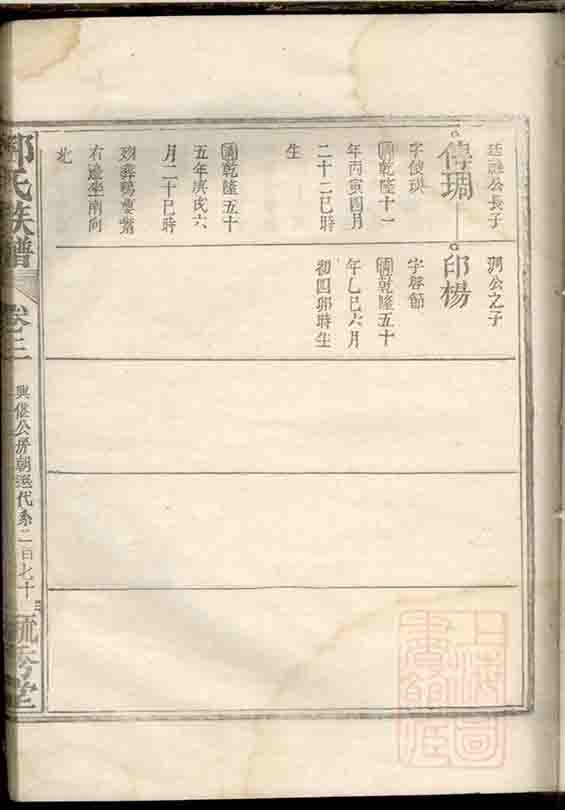 廷融公長子
傳琱
字俊瑛
清乾隆十一
年丙寅四月
二十二巳時
生
清乾隆五十
五年庚戌六
月二十巳時
歿葬鴨
右邊坐南向
北
琱公之子
印楊
字蓉節
清乾隆五十
年乙巳六月
初四卯時生
氏族譜
卷三
興公房朝選代系二百七十
毓秀堂
上海圖書館藏